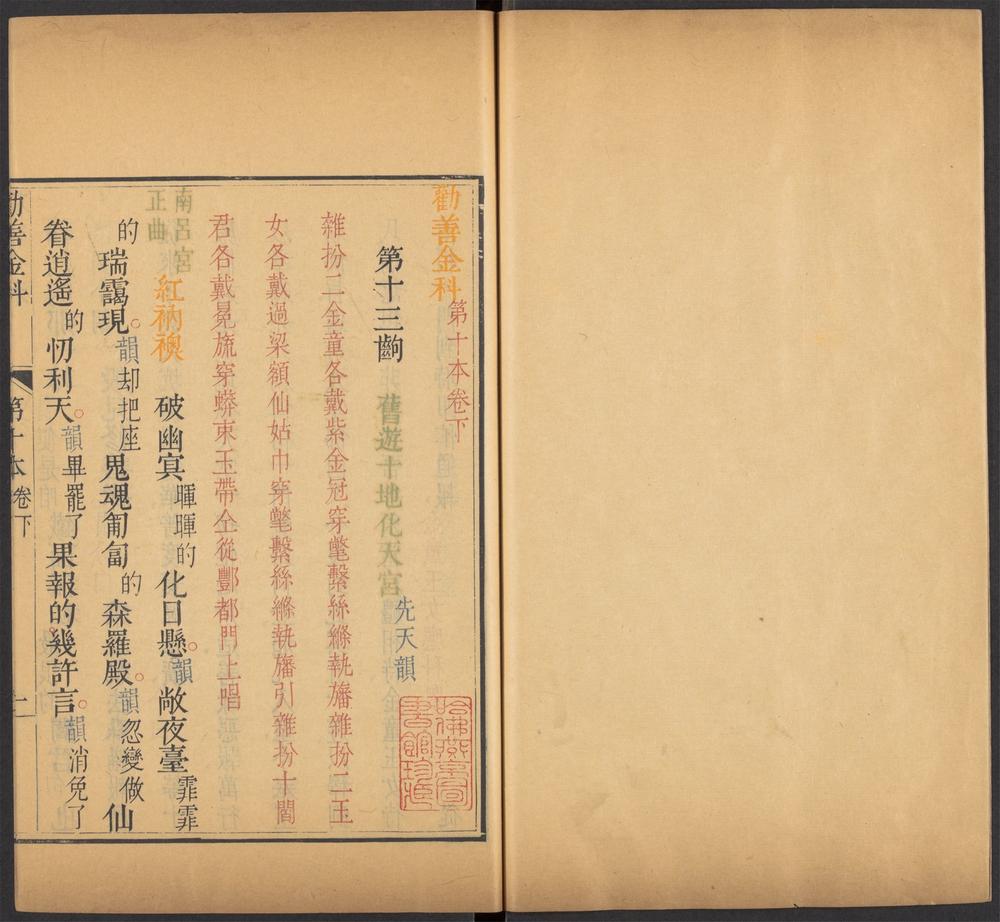 勸善金科第十本卷下
第十三齣　舊遊十地化天宮先天韻
雜扮二金童各戴紫金冠穿氅繫絲縧執旛雜扮二玉
女各戴過梁額仙姑巾穿氅繫絲縧執旛引雜扮十閻
君各戴冕旒穿蟒束玉帶仝從酆都門上唱
南呂宮
正曲
紅衲襖　破幽冥暉暉的化日懸。韻敞夜臺霏霏
的瑞靄現。韻却把座鬼魂匍匐的森羅殿。韻忽變做仙
眷逍遙的忉利天。韻畢罷了果報的幾許言。韻消免了
勸善金科　第十本卷下　一
哈佛燕京圖書館珍藏